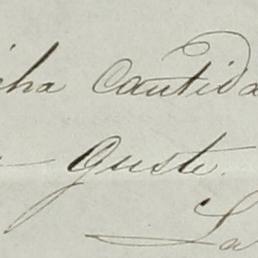 cha cantida
guste.
La